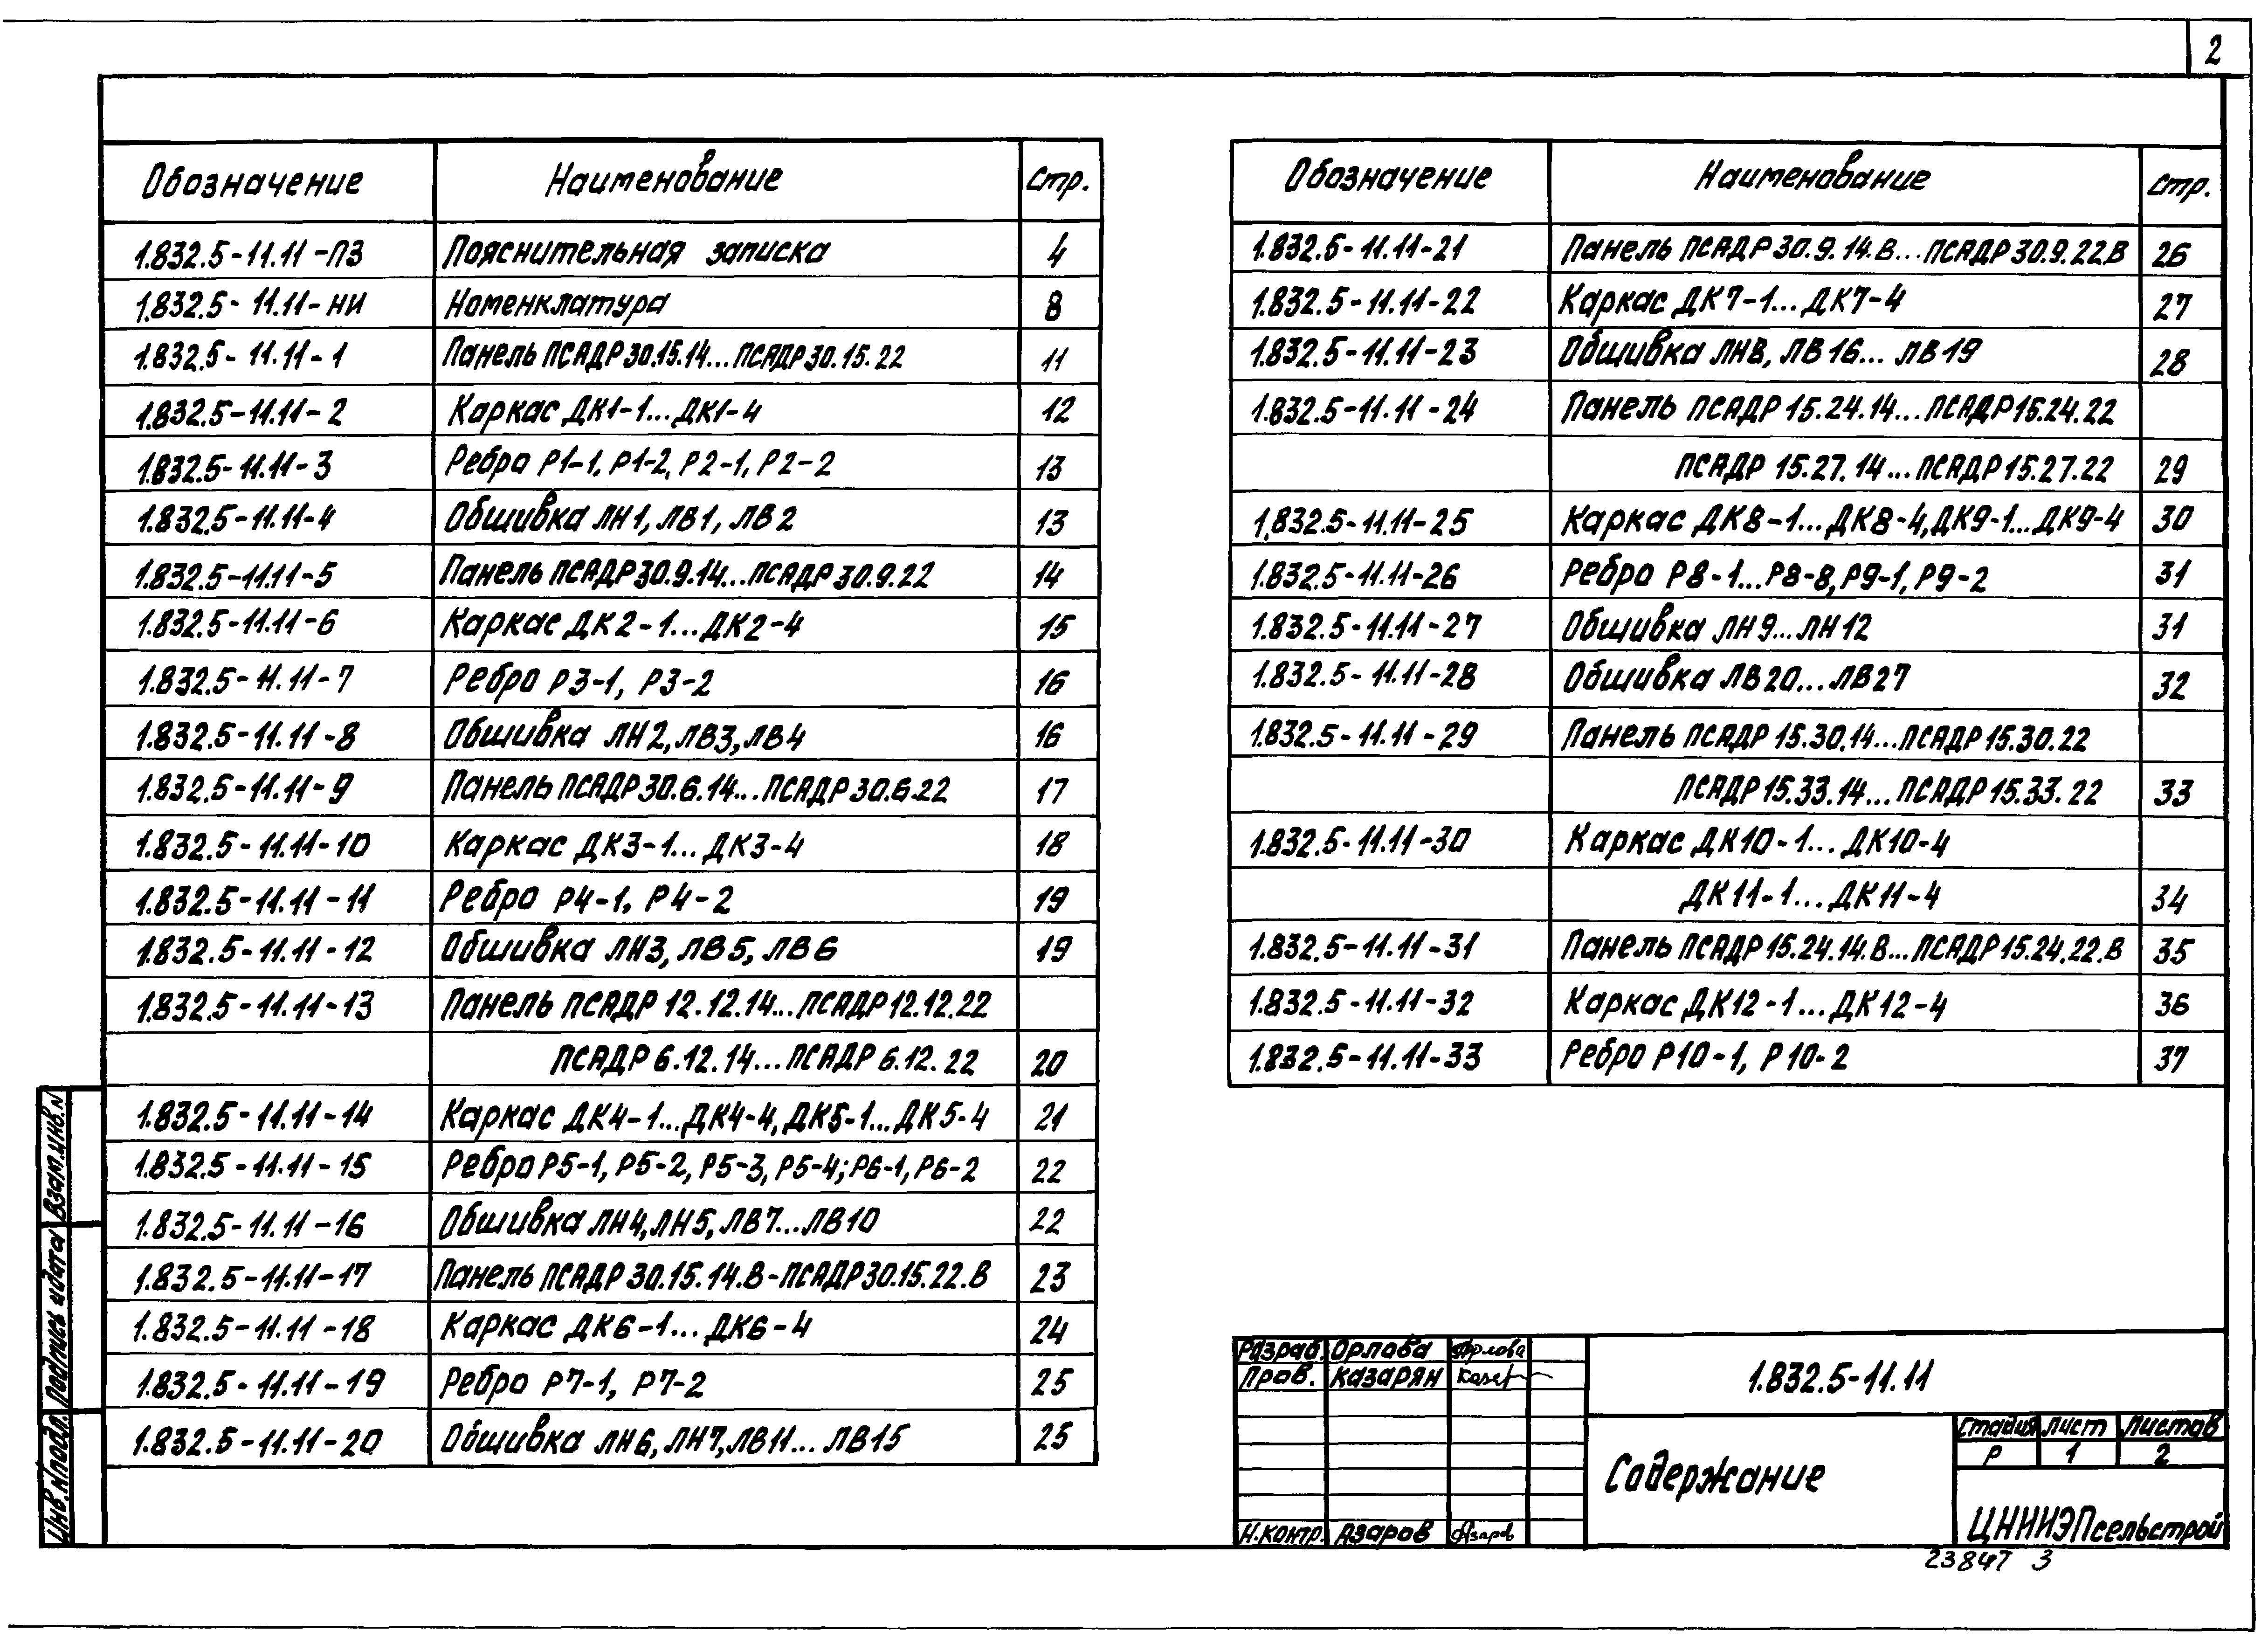 2
Обозначение Наименование Стр.
1.832.5-11.11-ПЗ Пояснительная записка 4
1.832.5-11.11-НИ Номенклатура 8
1.832.5-11.11-1 Панель ПСАДР30.15.14...ПСАДР30.15.22 11
1.832.5-11.11-2 Каркас ДК1-1...ДК1-4 12
1.832.5-11.11-3 Ребро Р1-1, Р1-2, Р2-1, Р2-2 13
1.832.5-11.11-4 Обшивка ЛН1, ЛВ1, ЛВ2 13
1.832.5-11.11-5 Панель ПСАДР30.9.14...ПСАДР30.9.22 14
1.832.5-11.11-6 Каркас ДК2-1...ДК2-4 15
1.832.5-11.11-7 Ребро Р3-1, Р3-2 16
1.832.5-11.11-8 Обшивка ЛН2, ЛВ3, ЛВ4 16
1.832.5-11.11-9 Панель ПСАДР30.6.14...ПСАДР30.6.22 17
1.832.5-11.11-10 Каркас ДК3-1...ДК3-4 18
1.832.5-11.11-11 Ребро Р4-1, Р4-2 19
1.832.5-11.11-12 Обшивка ЛН3, ЛВ5, ЛВ6 19
1.832.5-11.11-13 Панель ПСАДР 12.12.14...ПСАДР12.12.22
ПСАДР 6.12.14...ПСАДР 6.12.22 20
1.832.5-11.11-14 Каркас ДК4-1...ДК4-4, ДК5-1...ДК5-4 21
1.832.5-11.11-15 Ребро Р5-1, Р5-2, Р5-3, Р5-4; Р6-1, Р6-2 22
1.832.5-11.11-16 Обшивка ЛН4, ЛН5, ЛВ7...ЛВ10 22
1.832.5-11.11-17 Панель ПСАДР30.15.14.В-ПСАДР30.15.22.В 23
1.832.5-11.11-18 Каркас ДК6-1...ДК6-4 24
1.832.5-11.11-19 Ребро Р7-1, Р7-2 25
1.832.5-11.11-20 Обшивка ЛН6, ЛН7, ЛВ11...ЛВ15 25
Обозначение Наименование Стр.
1.832.5-11.11-21 Панель ПСАДР30.9.14.В...ПСАДР30.9.22В 26
1.832.5-11.11-22 Каркас ДК7-1...ДК7-4 27
1.832.5-11.11-23 Обшивка ЛН8, ЛВ16...ЛВ19 28
1.832.5-11.11-24 Панель ПСАДР 15.24.14...ПСАДР15.24.22
ПСАДР 15.27.14...ПСАДР15.27.22 29
1.832.5-11.11-25 Каркас ДК8-1...ДК8-4, ДК9-1...ДК9-4 30
1.832.5-11.11-26 Ребро Р8-1...Р8-8, Р9-1, Р9-2 31
1.832.5-11.11-27 Обшивка ЛН9...ЛН12 31
1.832.5-11.11-28 Обшивка ЛВ20...ЛВ27 32
1.832.5-11.11-29 Панель ПСАДР 15.30.14...ПСАДР15.30.22
ПСАДР15.33.14...ПСАДР15.33.22 33
1.832.5-11.11-30 Каркас ДК10-1...ДК10-4
ДК11-1...ДК11-4 34
1.832.5-11.11-31 Панель ПСАДР15.24.14.В...ПСАДР15.24.22.В 35
1.832.5-11.11-32 Каркас ДК12-1...ДК12-4 36
1.832.5-11.11-33 Ребро Р10-1, Р10-2 37
Взам.инв.N
Подпись и дата
Инв.Nподл.
Разраб. Орлова Орлова
Пров. Казарян Казар
Н.контр. Азаров Азаров
1.832.5-11.11
Содержание
Стадия Лист Листов
Р 1 2
ЦНИИЭПсельстрой
23847 3